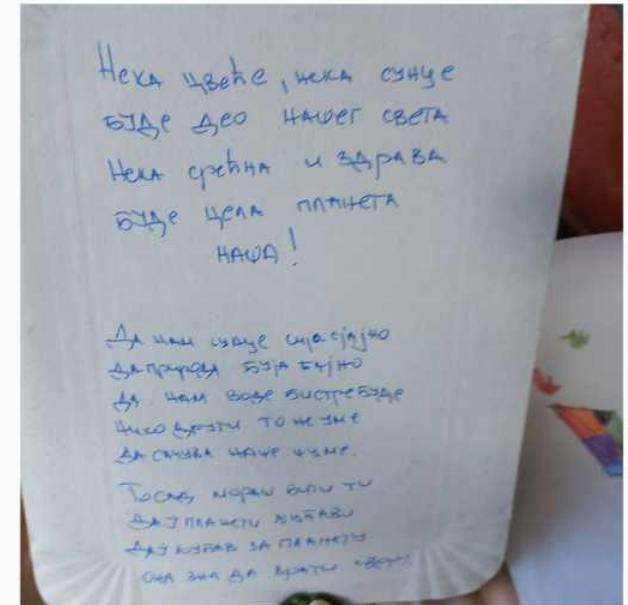 Нека цвеће, нека сунце
буде део нашег света
Нека срећна и здрава
буде цела планета
наша!
Да нам сунце сија сјајно
да природа буја бајно
да нам воде бистре буде
нико други то не уме
да сачува наше шуме.
Посао мораш бити ти
дај планети љубави
дај љубав за планету
она зна да врати